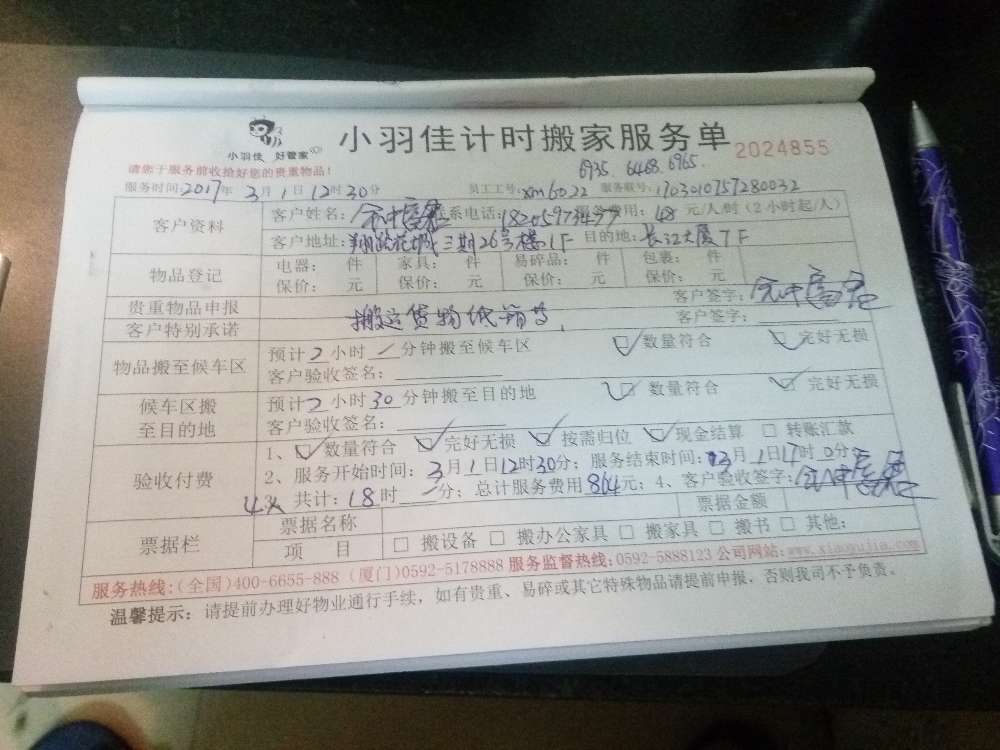 小羽佳 好管家
小羽佳计时搬家服务单
2024855
6935. 6468. 6965.
请您于服务前收拾好您的贵重物品!
服务时间:2017年 3月1日12时30分 员工工号:xm6022 服务联号:1703010757280032
客户资料
客户姓名: 联系电话: 服务费用: 48 元/人/时(2小时起/人)
客户地址:翔鹭花城三期26号楼1F 目的地:长江大厦7F
物品登记
电器: 件 家具: 件 易碎品: 件 包裹: 件
保价: 元 保价: 元 保价: 元 保价: 元
贵重物品申报 客户签字:
客户特别承诺 搬运货物纸箱等. 客户签字:
物品搬至候车区
预计2小时 / 分钟搬至候车区 ☑数量符合 ☑完好无损
客户验收签名:
候车区搬至目的地
预计2小时30分钟搬至目的地 ☑数量符合 ☑完好无损
客户验收签名:
验收付费
1、☑数量符合 ☑完好无损 ☑按需归位 ☑现金结算 □转账汇款
2、服务开始时间:3月1日12时30分;服务结束时间:3月1日17时0分
4人 共计:18时 / 分;总计服务费用864元;4、客户验收签字:
票据栏
票据名称 票据金额
项 目 □ 搬设备 □ 搬办公家具 □ 搬家具 □ 搬书 □ 其他:
服务热线:(全国)400-6655-888 (厦门)0592-5178888 服务监督热线:0592-5888123 公司网站:www.xiaoyujia.com
温馨提示:请提前办理好物业通行手续,如有贵重、易碎或其它特殊物品请提前申报,否则我司不予负责。